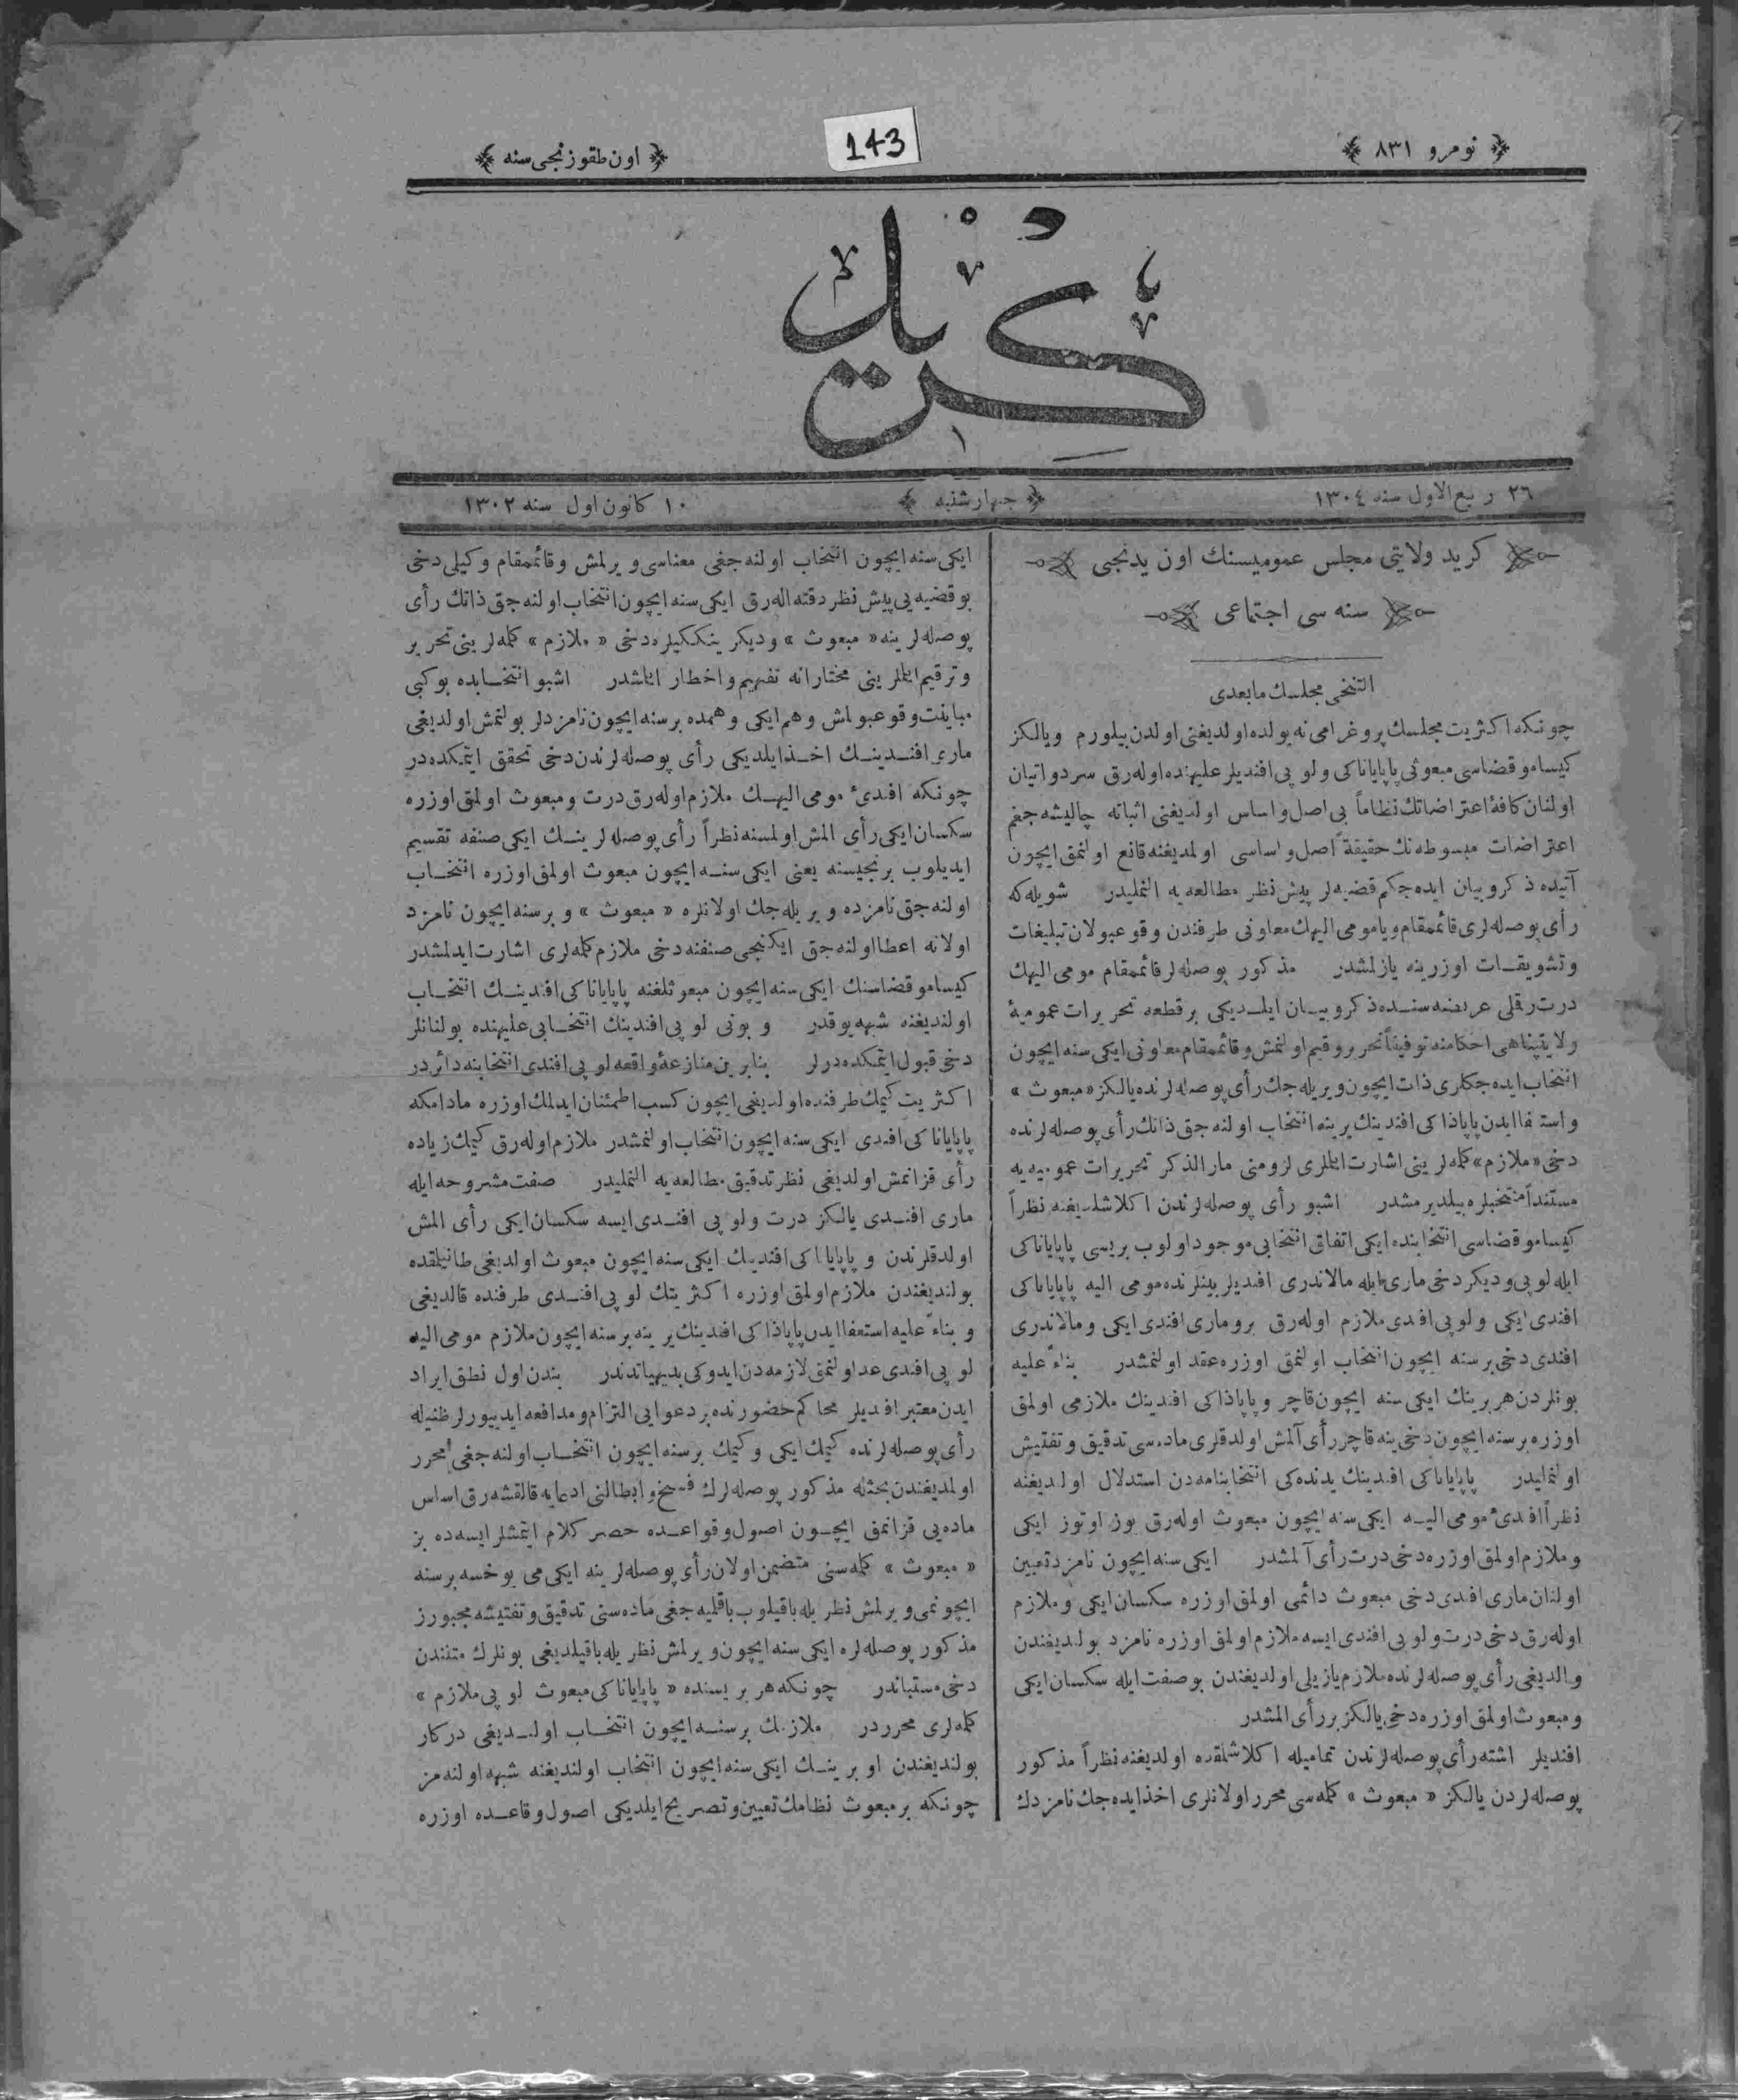 نومرو ٨٣١
143
اون طقوزنجی سنه
كريد
٢٦ ربيع الاول سنه ١٣٠٤
چهارشنبه
١٠ كانون اول سنه ١٣٠٢
كريد ولايتی مجلس عموميسنك اون يدنجی
سنه سی اجتماعی
التنجی مجلسك مابعدی
چونكه اكثريت مجلسك پروغرامی نه يولده اولديغنی اولدن بيلورم ويالكز
كيسامو قضاسی مبعوثی پاپاياناكی ولو پی افنديلر عليهنده اوله رق سرد واتيان
اولنان كافهٔ اعتراضاتك نظاماً بی اصل واساس اولديغنی اثباته چاليشه جغم
اعتراضات مبسوطه نك حقيقةً اصل واساسی اولمديغنه قانع اولنمق ايچون
آتيده ذكر وبيان ايده جكم قضيه لر پيش نظر مطالعه يه النمليدر شويله كه
رأی پوصله لری قائممقام ويا مومی اليهك معاونی طرفندن وقوعبولان تبليغات
وتشويقات اوزرينه يازلمشدر مذكور پوصله لر قائممقام مومی اليهك
درت رقملی عريضه سنده ذكر وبيان ايلديكی برقطعه تحريرات عموميهٔ
ولايتپناهی احكامنه توفيقاً تحرير وقيم اولنمش وقائممقام معاونی ايكی سنه ايچون
انتخاب ايده جكلری ذات ايچون ويريله جك رأی پوصله لرنده يالكز «مبعوث»
واستعفا ايدن پاپاذاكی افندينك يرينه انتخاب اولنه جق ذاتك رأی پوصله لرنده
دخی «ملازم» كله لرينی اشارت ايتلری لزومنی مارالذكر تحريرات عموميه يه
مستنداً منتخبلره بيلديرمشدر اشبو رأی پوصله لرندن اكلاشلديغنه نظراً
كيسامو قضاسی انتخابنده ايكی اتفاق انتخابی موجود اولوب بريسی پاپاياناكی
ايله لو پی وديكر دخی ماری ايله مالاندری افنديلر بينلرنده مومی اليه پاپاياناكی
افندی ايكی ولو پی افندی ملازم اوله رق بر وماری افندی ايكی ومالاندری
افندی دخی برسنه ايچون انتخاب اولنمق اوزره عقد اولنمشدر بناءً عليه
بونلردن هر برينك ايكی سنه ايچون قاچر و پاپاذاكی افندينك ملازمی اولمق
اوزره برسنه ايچون دخی ينه قاچر رأی آلمش اولدقلری ماده سی تدقيق وتفتيش
اولنمليدر پاپاياناكی افندينك يدنده كی انتخابنامه دن استدلال اولديغنه
نظراً افندیٔ مومی اليه ايكی سنه ايچون مبعوث اوله رق يوز اوتوز ايكی
وملازم اولمق اوزره دخی درت رأی آلمشدر ايكی سنه ايچون نامزد تعيين
اولنان ماری افندی دخی مبعوث دائمی اولمق اوزره سكسان ايكی وملازم
اوله رق دخی درت ولو پی افندی ايسه ملازم اولمق اوزره نامزد بولنديغندن
والديغی رأی پوصله لرنده ملازم يازيلی اولديغندن بو صفت ايله سكسان ايكی
ومبعوث اولمق اوزره دخی يالكز بر رأی المشدر
افنديلر اشته رأی پوصله لرندن تماميله اكلاشلمقده اولديغنه نظراً مذكور
پوصله لردن يالكز «مبعوث» كله سی محرر اولانلری اخذ ايده جك نامزدك
ايكی سنه ايچون انتخاب اولنه جغی معناسی ويرلمش وقائممقام وكيلی دخی
بو قضيه يی پيش نظر دقته اله رق ايكی سنه ايچون انتخاب اولنه جق ذاتك رأی
پوصله لرينه «مبعوث» وديكر ينككيلره دخی «ملازم» كله لرينی تحرير
وترقيم ايتلرينی مختارانه تفهيم واخطار ايتمشدر اشبو انتخابده بوكبی
مباينت وقوعبولمش وهم ايكی وهمده برسنه ايچون نامزدلر بولنمش اولديغی
ماری افندينك اخذ ايلديكی رأی پوصله لرندن دخی تحقق ايتمكده در
چونكه افندیٔ مومی اليهك ملازم اوله رق درت ومبعوث اولمق اوزره
سكسان ايكی رأی المش اولمسنه نظراً رأی پوصله لرينك ايكی صنفه تقسيم
ايديلوب برنجيسنه يعنی ايكی سنه ايچون مبعوث اولمق اوزره انتخاب
اولنه جق نامزده ويريله جك اولانلره «مبعوث» و برسنه ايچون نامزد
اولانه اعطا اولنه جق ايكنجی صنفنه دخی ملازم كله لری اشارت ايدلمشدر
كيسامو قضاسنك ايكی سنه ايچون مبعوثلغنه پاپاياناكی افندينك انتخاب
اولنديغنه شبهه يوقدر و بونی لو پی افندينك انتخابی عليهنده بولنانلر
دخی قبول ايتمكده درلر بنابرين منازعهٔ واقعه لو پی افندی انتخابنه دائردر
اكثريت كيمك طرفنده اولديغی ايچون كسب اطمئنان ايدلمك اوزره مادامكه
پاپاياناكی افندی ايكی سنه ايچون انتخاب اولنمشدر ملازم اوله رق كيمك زياده
رأی قزانمش اولديغی نظر تدقيق مطالعه يه النمليدر صفت مشروحه ايله
ماری افندی يالكز درت ولو پی افندی ايسه سكسان ايكی رأی المش
اولدقلرندن و پاپاياناكی افندينك ايكی سنه ايچون مبعوث اولديغی طانيلمقده
بولنديغندن ملازم اولمق اوزره اكثريتك لو پی افندی طرفنده قالديغی
و بناءً عليه استعفا ايدن پاپاذاكی افندينك يرينه برسنه ايچون ملازم مومی اليه
لو پی افندی عد اولنمق لازمه دن ايدوكی بديهياتدندر بندن اول نطق ايراد
ايدن معتبر افنديلر محاكم حضورنده بر دعوايی التزام ومدافعه ايدييورلر ظنيله
رأی پوصله لرنده كيمك ايكی وكيمك برسنه ايچون انتخاب اولنه جغی محرر
اولمديغندن بحثله مذكور پوصله لرك فسخ وابطالنی ادعايه قالقشه رق اساس
ماده يی قزانمق ايچون اصول وقواعده حصر كلام ايتمشلر ايسه ده بز
«مبعوث» كله سنی متضمن اولان رأی پوصله لرينه ايكی می يوخسه برسنه
ايچونمی ويرلمش نظريله باقيلوب باقلميه جغی ماده سنی تدقيق وتفتيشه مجبورز
مذكور پوصله لره ايكی سنه ايچون ويرلمش نظريله باقيلديغی بونلرك متنندن
دخی مستباندر چونكه هر بريسنده «پاپاياناكی مبعوث لو پی ملازم»
كله لری محرردر ملازمك برسنه ايچون انتخاب اولنديغی دركار
بولنديغندن او برينك ايكی سنه ايچون انتخاب اولنديغنه شبهه اولنه مز
چونكه بر مبعوث نظامك تعيين وتصريح ايلديكی اصول وقاعده اوزره